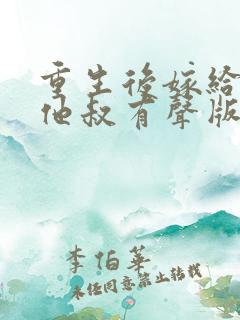 重生後嫁給
他叔有聲版
李伯華
未经同意禁止转载